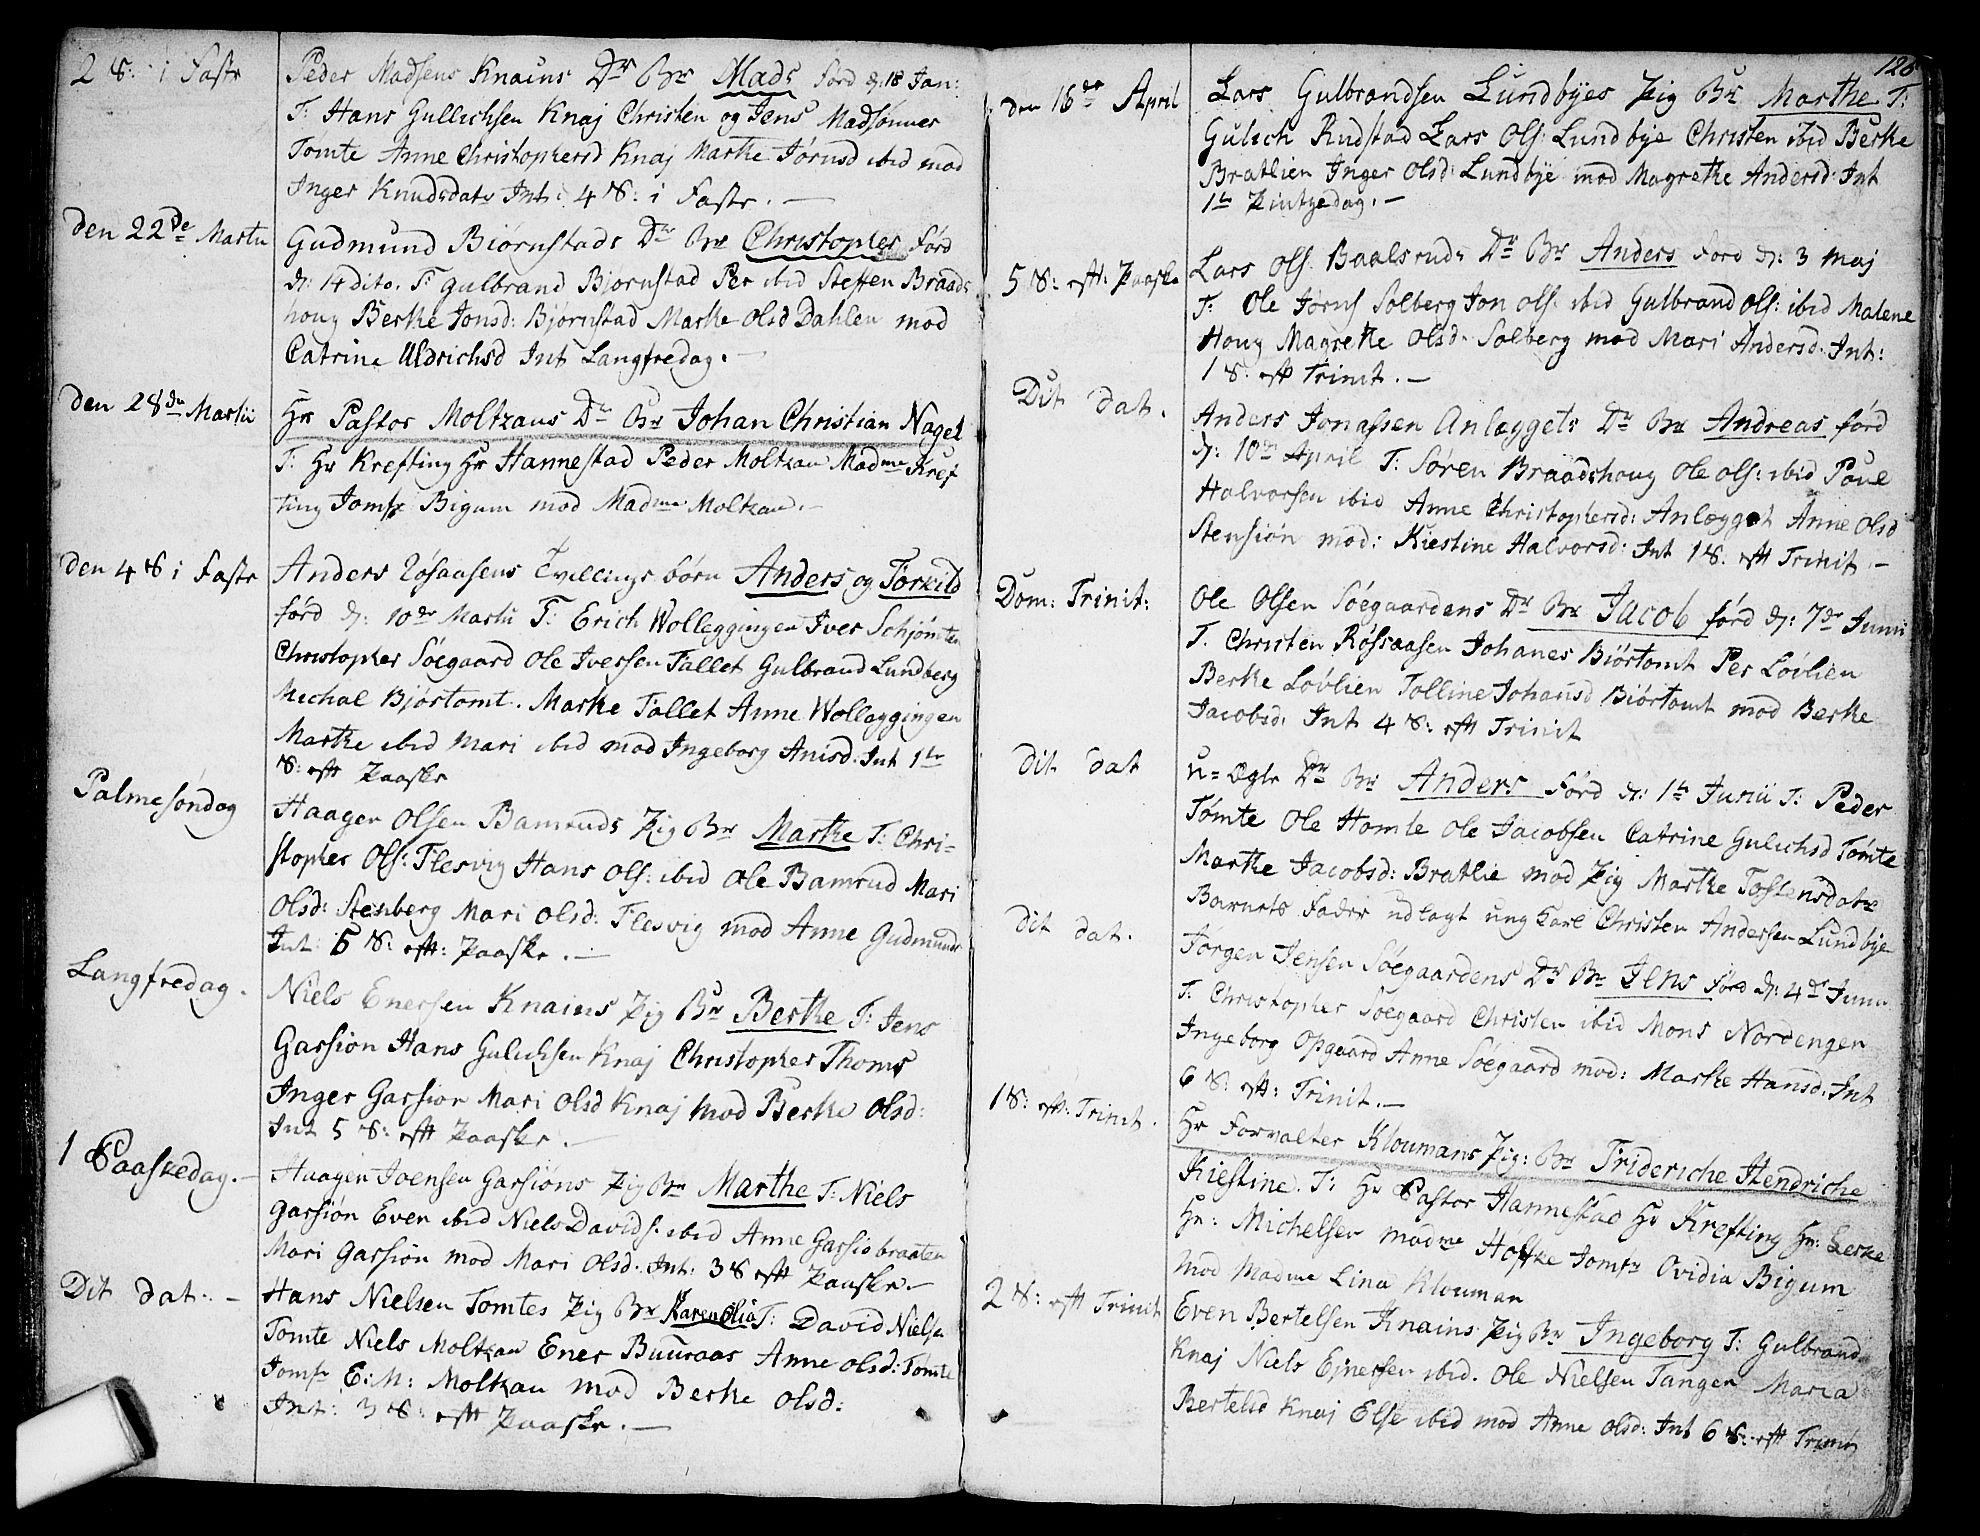 2 S: i Faste
Peder Madsens Knains Dr Br Mads förd d: 18 Jan:
T: Hans Gullichsen Knaj Christen og Jens Madsønner
Tomte Anne Christophersd Knaj Marthe Jörnsd ibid mod
Inger Knudsdatr Int: 4 S: i Faste. —
den 22de Martii
Gudmund Biørnstads Dr Br Christopher förd
d: 14 dito. T: Gulbrand Bjornstad Per ibid Steffen Braads
houg Berthe Jonsd: Bjørnstad Marthe Olsd Dahlen mod
Catrine Uldrichsd Int Langfredag. —
den 28de Martii
Hr Pastor Moltzaus Dr Br Johan Christian Nagel
T: Hr Krefting Hr Hannestad Peder Moltzau Madme Kref
ting Jomfr Bigum mod Madme Moltzau. —
den 4 S i Faste
Anders Rösaasens Tvillings börn Anders og Torkild
förd d: 10de Martii T: Erich Wolleggingen Iver Schjømten
Christopher Söegaard Ole Iversen Tallet Gulbrand Lundberg
Michal Bjørtomt. Marthe Tallet Anne Wolleggingen
Marthe ibid Mari ibid mod Ingeborg Anisd. Int 1te
S: eft Paaske
Palmesøndag
Haagen Olsen Bamruds Pig Br Marthe T: Chri-
stopher Ols: Flesvig Hans Ols: ibid Ole Bamrud Mari
Olsd: Stenberg Mari Olsd: Flesvig mod Anne Gudmunds
Int: 5 S: eft: Paaske. —
Langfredag.
Niels Enersen Knains Pig Br Berthe T: Jens
Garsiøn Hans Gulichsen Knaj Christopher Thoms
Inger Garsion Mari Olsd Knaj mod Berthe Olsd:
Int 5 S: eft Paaske. —
1 Paaskedag. —
Haagen Joensen Garsions Pig Br Marthe T: Niels
Garsiön Even ibid Niels Davids: ibid Anne Garsiobraaten
Mari Garsion mod Mari Olsd. Int: 3 S eft Paaske —
Dit dat. —
Hans Nielsen Tomtes Pig Br Karen Olia T: David Nielsen
Tomte Niels Moltzau Ener Buuraas Anne Olsd: Tomte
Jomfr E: M: Moltzau mod Berthe Olsd:
Int: 3 S: eft Paaske. —
128
den 16de April
Lars Gulbrandsen Lundbyes Pig Br Marthe T:
Gulich Rudstad Lars Ols: Lundbye Christen ibid Berthe
Bratlien Inger Olsd: Lundbye mod Magrethe Andersd: Int
1te Pintzedag. —
5 S: eft: Paaske
Lars Ols: Baalsruds Dr Br Anders förd d: 3 Maj
T: Ole Jörns Solberg Jon Ols: ibid Gulbrand Ols: ibid Malene
Houg Magrethe Olsd. Solberg mod Mari Andersd. Int:
1 S: eft Trinit. —
Dit dat.
Anders Jonassen Anlægget Dr Br Andreas förd
d: 10de April T: Søren Braadshoug Ole Ols: ibid Poul
Halvorsen ibid Anne Christophersd: Anlægget Anne Olsd
Stensiön mod: Kiestine Halvorsd: Int 1 S. eft Trinit —
Dom: Trinit:
Ole Olsen Söegaardens Dr Br Jacob förd d: 7de Junii
T. Christen Rössaasen Johanes Biörtomt Per Lövlien
Berthe Lövlien Tolline Johansd Biörtomt mod Berthe
Jacobsd. Int 4 S: eft Trinit
dit dat
U=Ægte Dr Br Anders förd d: 1te Junii T: Peder
Tömte Ole Homle Ole Jacobsen Catrine Gulichsd Tömte
Marthe Jacobsd: Bratlie mod Pig Marthe Tostensdatr
Barnets Fader udlagt ung Karl Christen Andersen Lundbye
dit dat.
Jörgen Jensen Söegaardens Dr Br Jens förd d: 4de Junii
T: Christopher Soegaard Christen ibid Mons Nordengen
Ingeborg Opgaard Anne Söegaard mod: Marthe Hansd. Int
6 S: eft: Trinit. —
1 S: eft: Trinit.
Hr Forvalter Kloumans Pig: Br Frideriche Hendriche
Kiestine. T: Hr Pastor Hannestad Hr Krefting Hr: Lerke
Hr: Michelsen Madme Hofke Jomfr Ovidia Bigum
mod Madme Lina Klouman
2 S: eft Trinit
Even Bertelsen Knains Pig Br Ingeborg T: Gulbrand
Knaj Niels Ejnersen ibid. Ole Nielsen Tangen Maria
Bertelsd Knaj Else ibid mod Anne Olsd: Int 6 S: eft Trinit